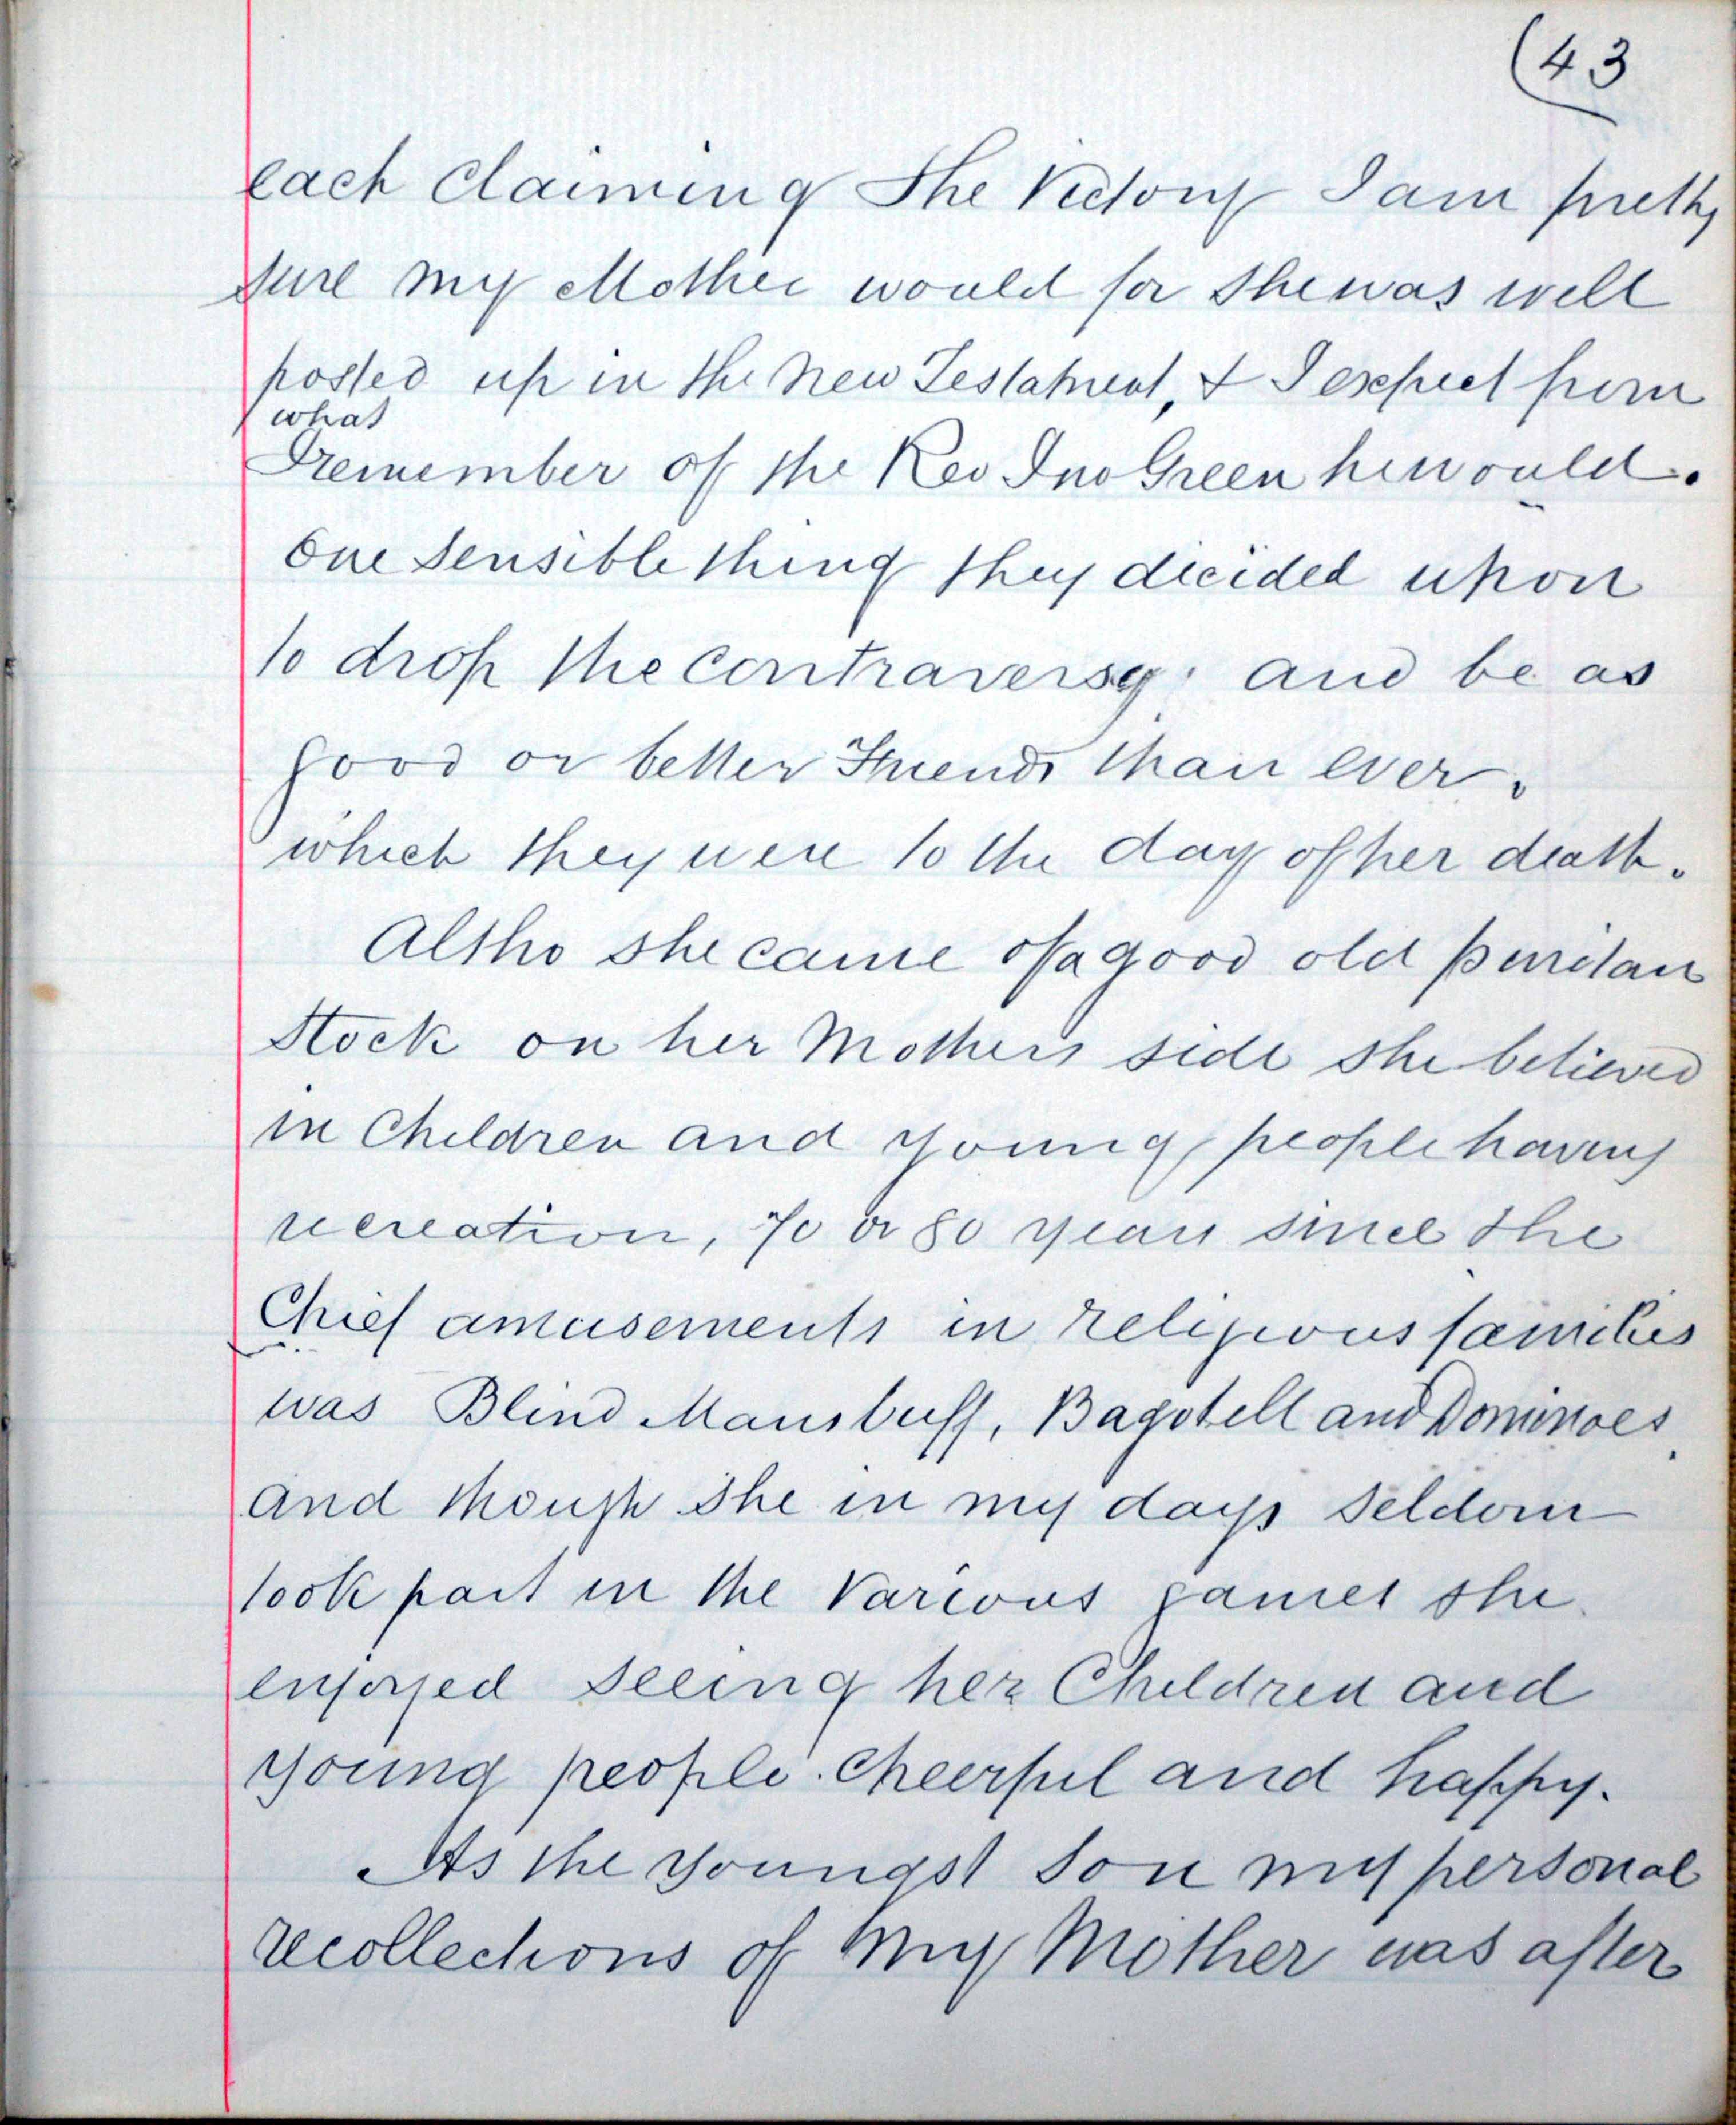 (43
each Claiming The Victory I am pretty
sure my Mother would for she was well
posted up in the New Testament, & I expect from
what
I remember of the Rev Jno Green he would.
One sensible thing they decided upon
to drop the contraversy. and be as
good or better Friends than ever.
which they were to the day of her death.
Altho she came of a good old puritan
Stock on her Mothers side she believed
in Children and young people having
recreation, 70 or 80 years since the
Chief amusements in religious families
was Blind Mansbuff, Bagotell and Dominoes.
and though she in my days seldom
took part in the Various games she
enjoyed seeing her Children and
young people. Cheerful and happy.
As the youngst Son my personal
recollections of my Mother was after